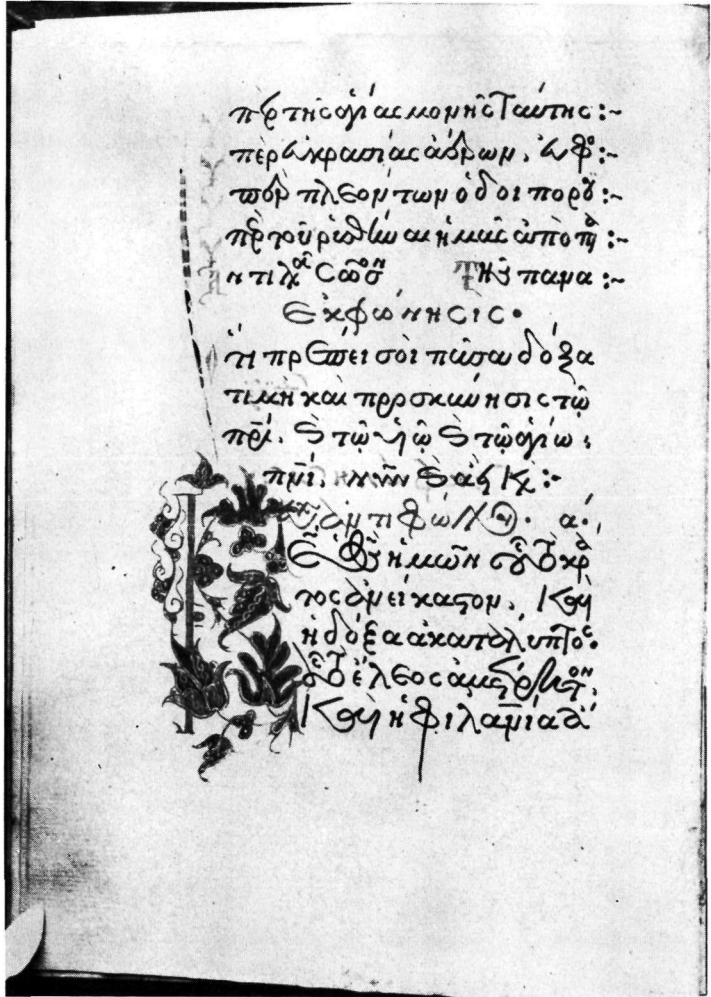 πὲρ τῆς ἁγίας μονῆς ταύτης :~
πὲρ εὐκρασίας ἀέρων. εὐφο :~
πὲρ πλεόντων ὁδοιπορού :~
πὲρ τοῦ ῥυσθῆναι ἡμᾶς ἀπὸ πα :~
ντιλα Σῶσον Τῆς πανα :~
Ἐκφώνησις.
τι πρέπει σοι πᾶσα δόξα
τιμὴ καὶ προσκύνησις τῷ
πρὶ. καὶ τῷ υἱῷ καὶ τῷ ἁγίω
πνι. νῦν καὶ ἀεὶ καὶ :~
ἀντιφώνου. α.
ὁ θς ἡμῶν οὗ τὸ κρά
τος ἀνείκαστον. καὶ
ἡ δόξα ἀκατάλυπτος.
οὗ τὸ ἔλεος ἀμέτρητον.
καὶ ἡ φιλανια ἄ